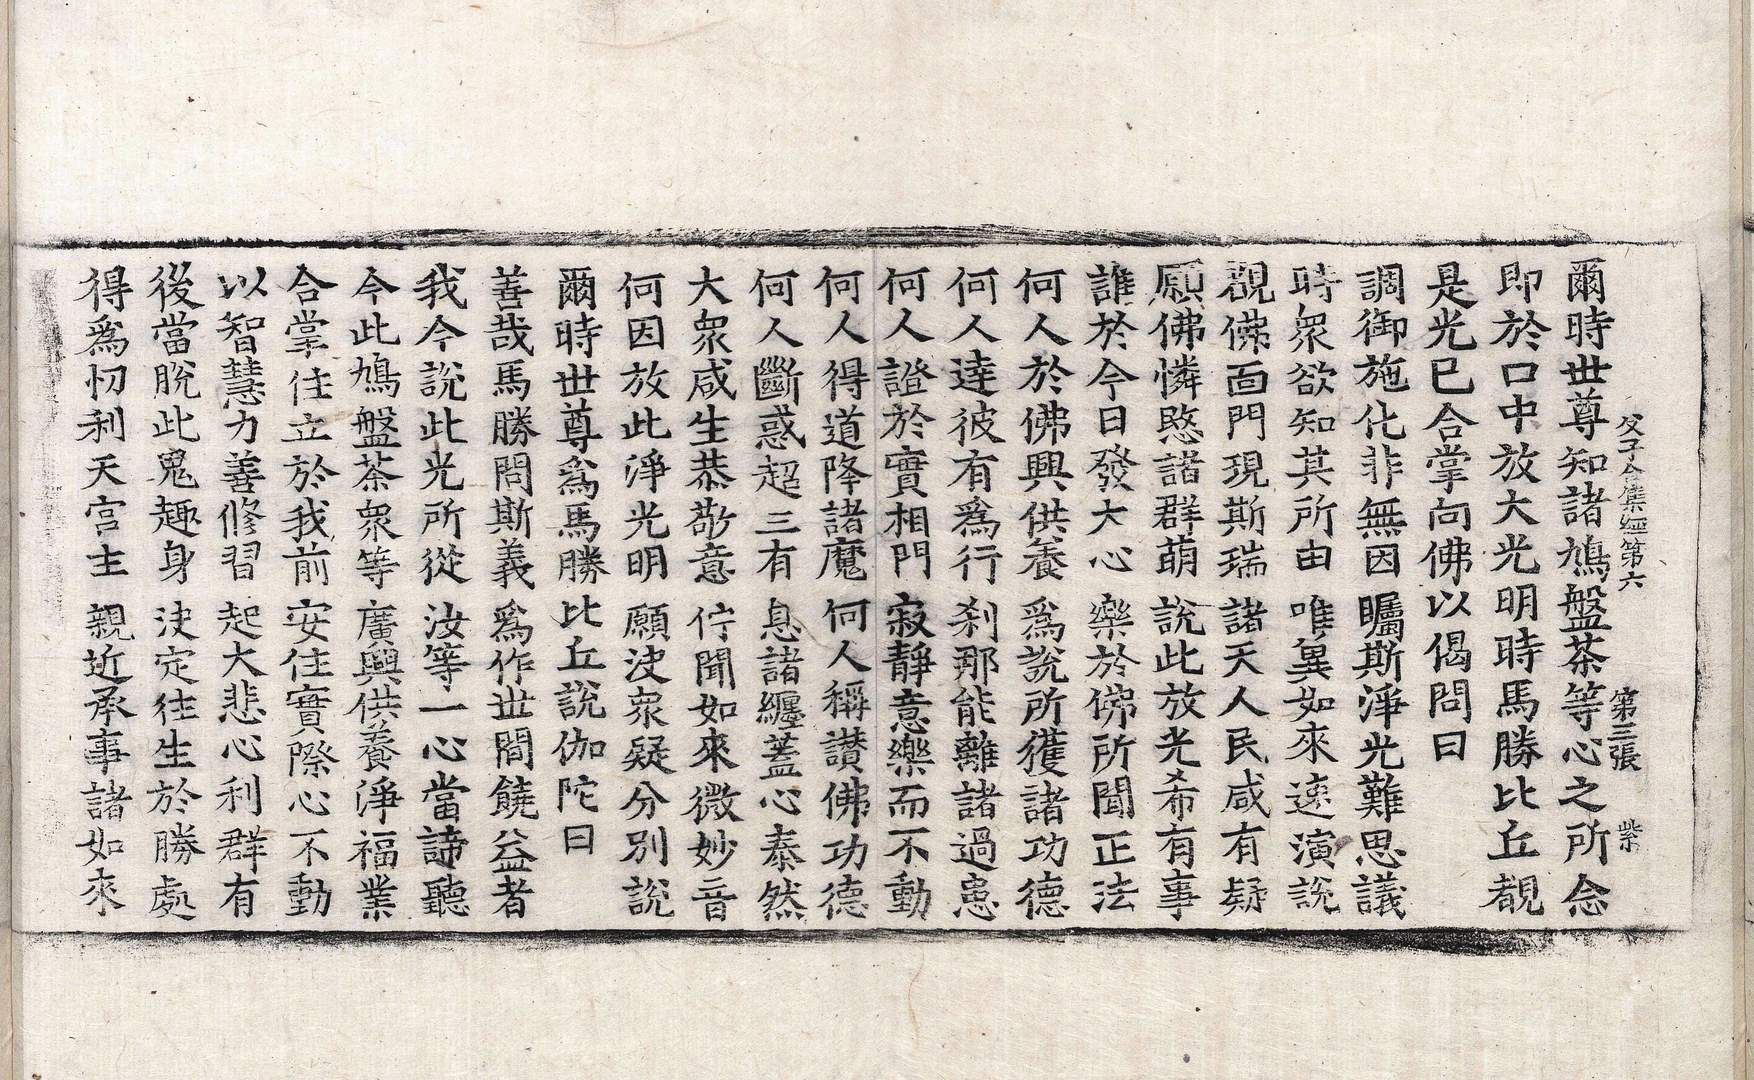 父子合集經第六 第三張 紫
爾時世尊知諸鳩盤茶等心之所念
即於口中放大光明時馬勝比丘覩
是光已合掌向佛以偈問曰
調御施化非無因 矚斯淨光難思議
時衆欲知其所由 唯兾如來速演說
覩佛面門現斯瑞 諸天人民咸有疑
願佛憐愍諸群萌 說此放光希有事
誰於今日發大心 樂於佛所聞正法
何人於佛興供養 爲說所獲諸功德
何人達彼有爲行 刹那能離諸過患
何人證於實相門 寂靜意樂而不動
何人得道降諸魔 何人稱讃佛功德
何人斷惑超三有 息諸纏蓋心泰然
大衆咸生恭敬意 佇聞如來微妙音
何因放此淨光明 願決衆疑分別說
爾時世尊爲馬勝比丘說伽陀曰
善哉馬勝問斯義 爲作世間饒益者
我今說此光所從 汝等一心當諦聽
今此鳩盤茶衆等 廣興供養淨福業
合掌住立於我前 安住實際心不動
以智慧力善修習 起大悲心利群有
後當脫此鬼趣身 決定往生於勝處
得爲忉利天宮主 親近承事諸如來